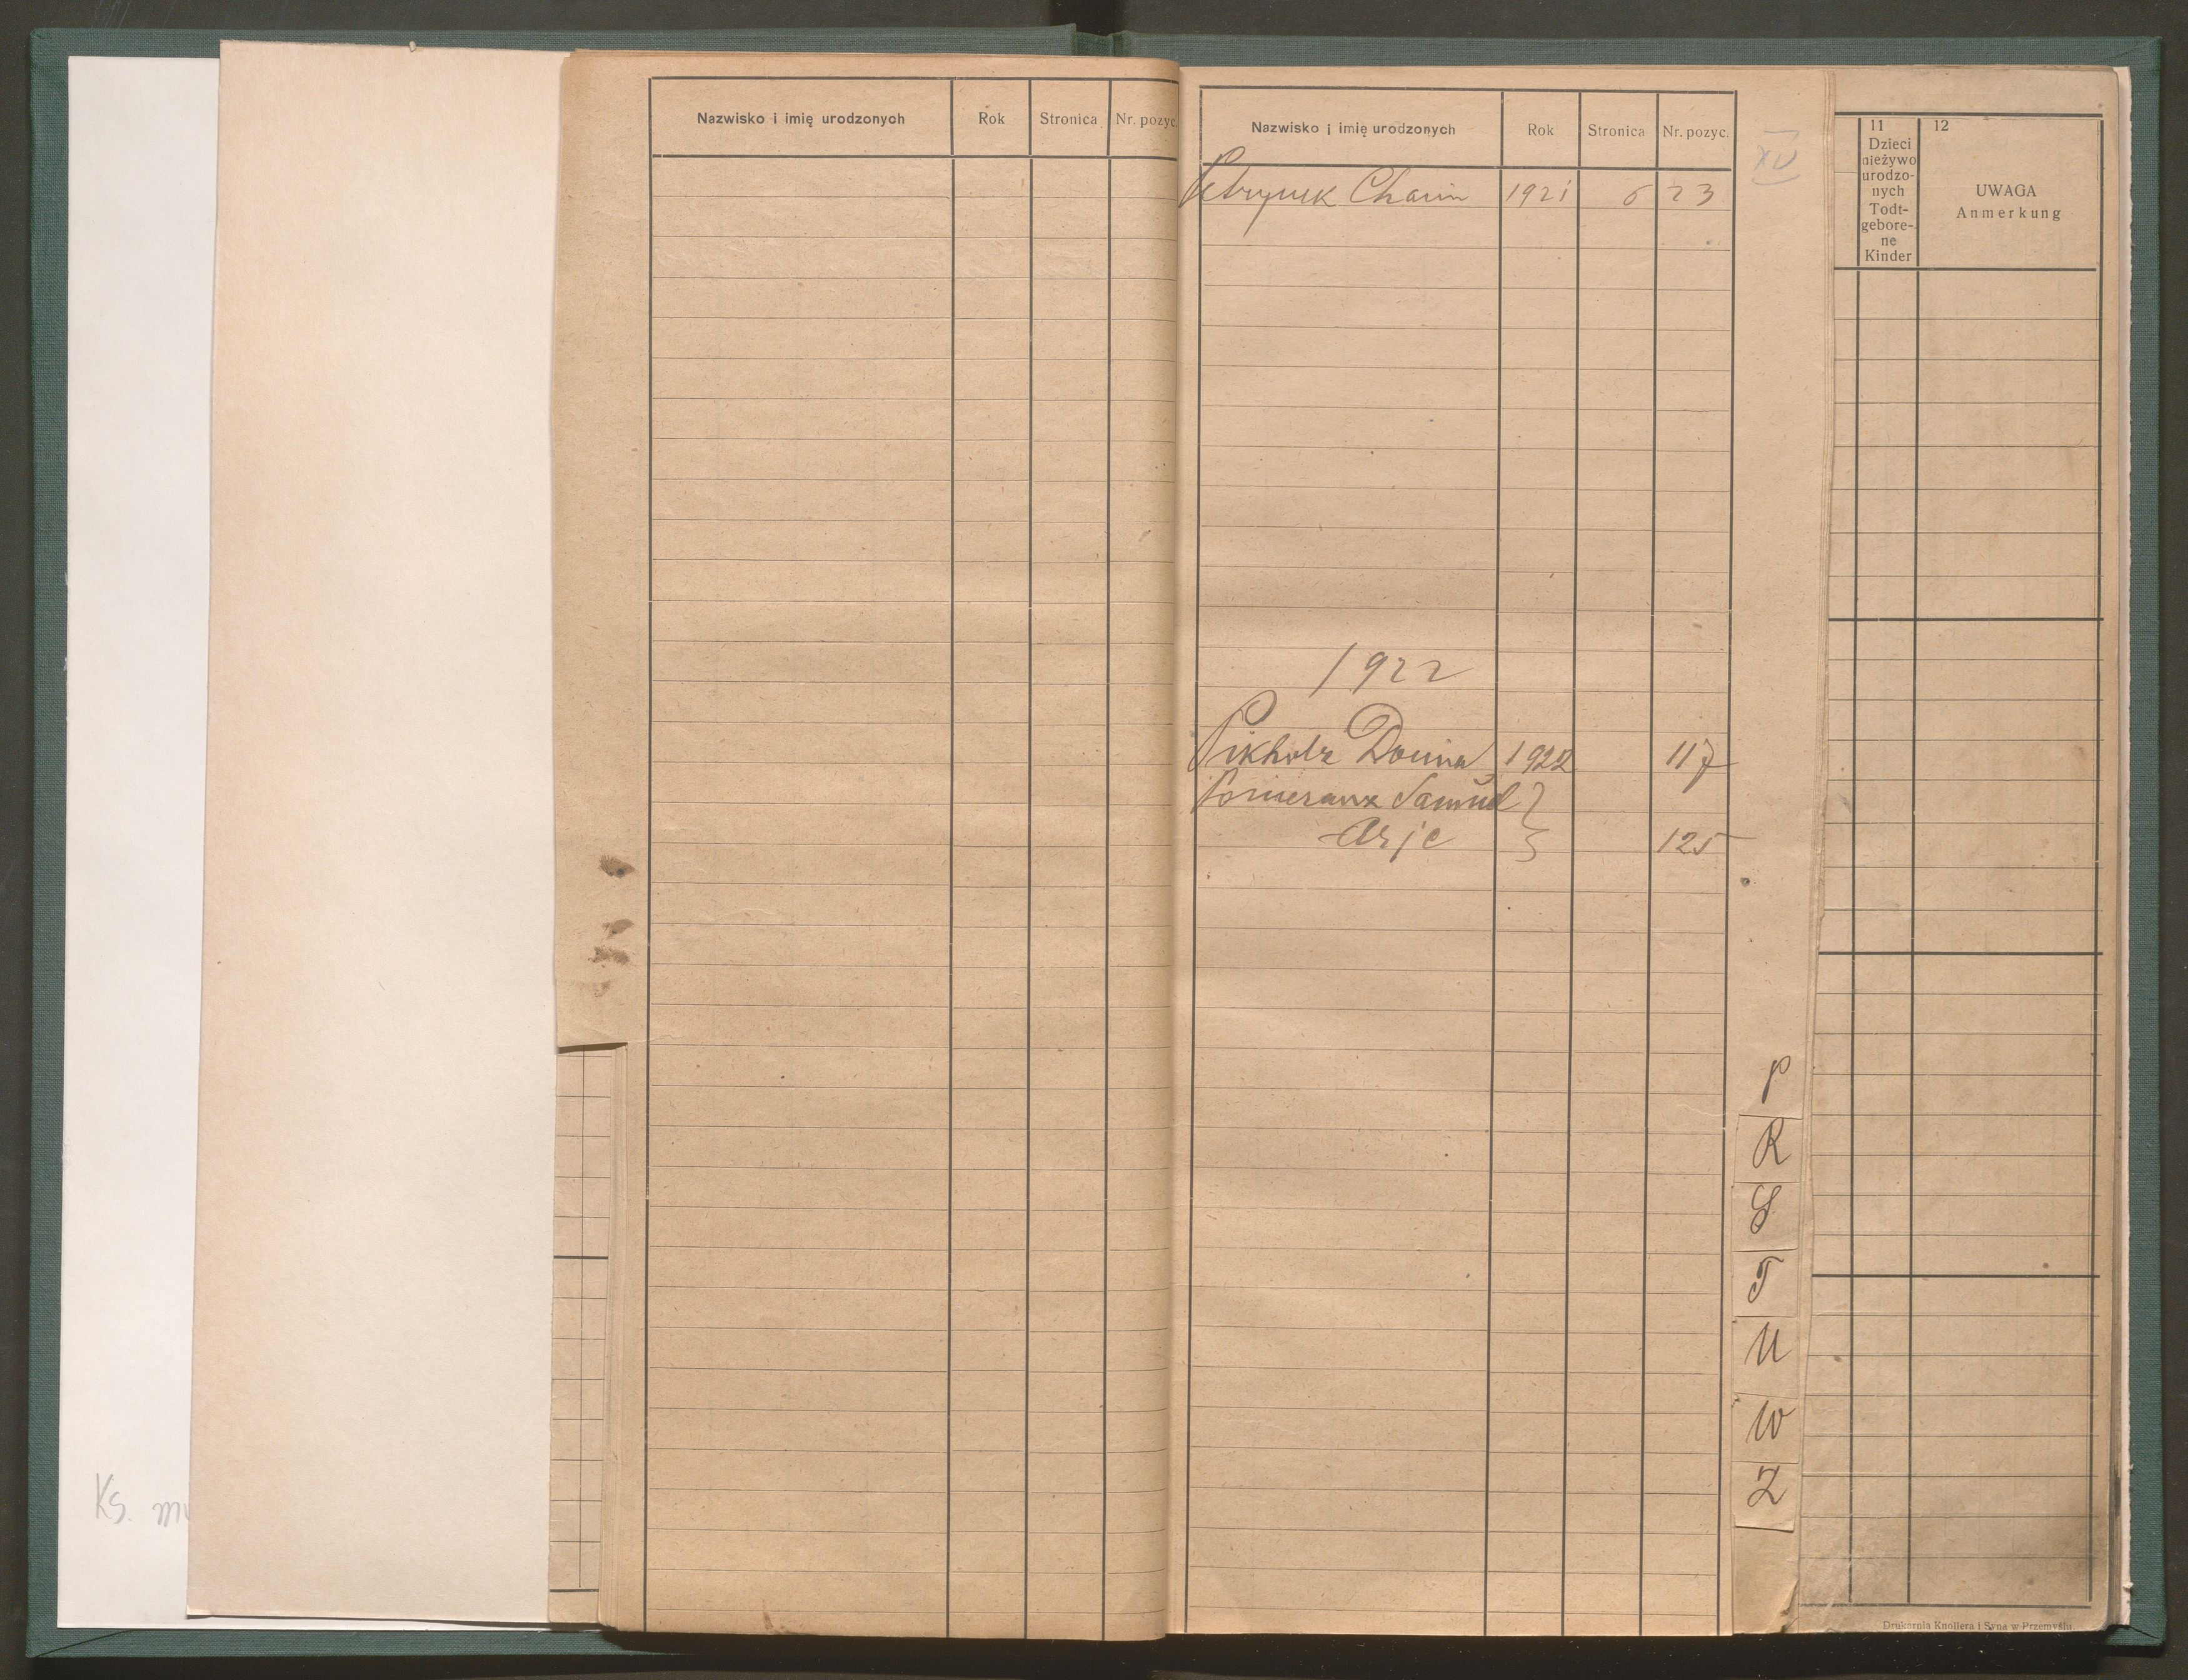 Nazwisko i imię urodzonych Rok Stronica Nr. pozyc.
Nazwisko i imię urodzonych Rok Stronica Nr. pozyc.
XV
Chaim 1921 6 23
1922
Pikholz Donia 1922 117
Pomeranz Samuel }
Arje 125
P
R
S
T
U
W
Z
11
Dzieci
nieżywo
urodzo-
nych
Todt-
gebore-
ne
Kinder
12
UWAGA
Anmerkung
Drukarnia Knollera i Syna w Przemyślu.
Ks.